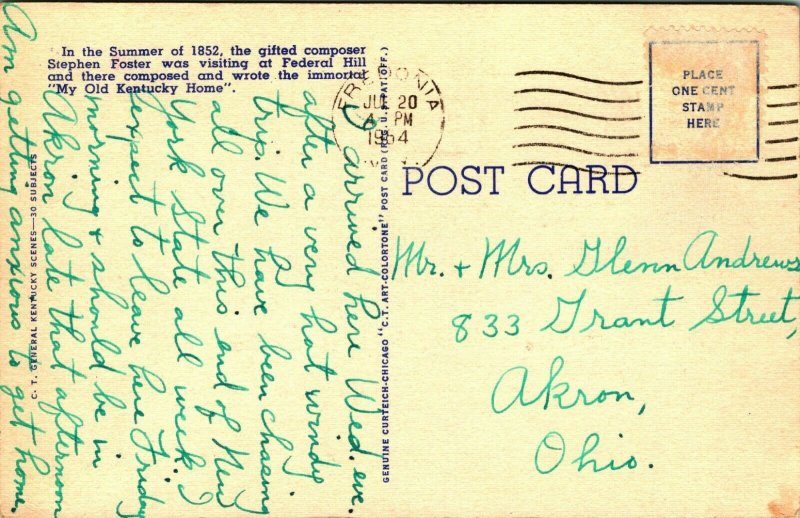 In the Summer of 1852, the gifted composer
Stephen Foster was visiting at Federal Hill
and there composed and wrote the immortal
"My Old Kentucky Home".
FREDONIA
JUL 20
4 PM
1954
N.Y.
PLACE
ONE CENT
STAMP
HERE
POST CARD
Mr. + Mrs. Glenn Andrews
833 Grant Street,
Akron,
Ohio.
I arrived here Wed. eve.
after a very hot windy
trip. We have been chasing
all over this end of New
York State all week. I
expect to leave here Friday
morning & should be in
Akron late that afternoon
Am getting anxious to get home.
C. T. GENERAL KENTUCKY SCENES—30 SUBJECTS
GENUINE CURTEICH-CHICAGO "C.T. ART-COLORTONE" POST CARD (REG. U.S. PAT. OFF.)